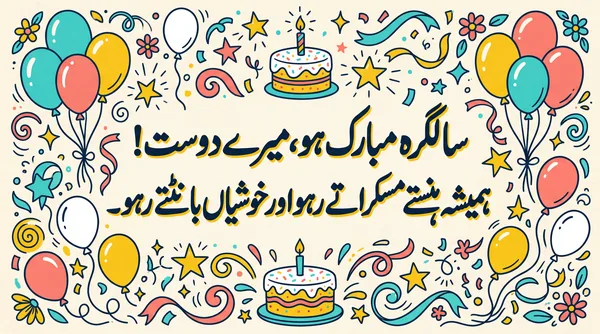 سالگرہ مبارک ہو، میرے دوست!
ہمیشہ ہنستے مسکراتے رہو اور خوشیاں بانٹتے رہو۔